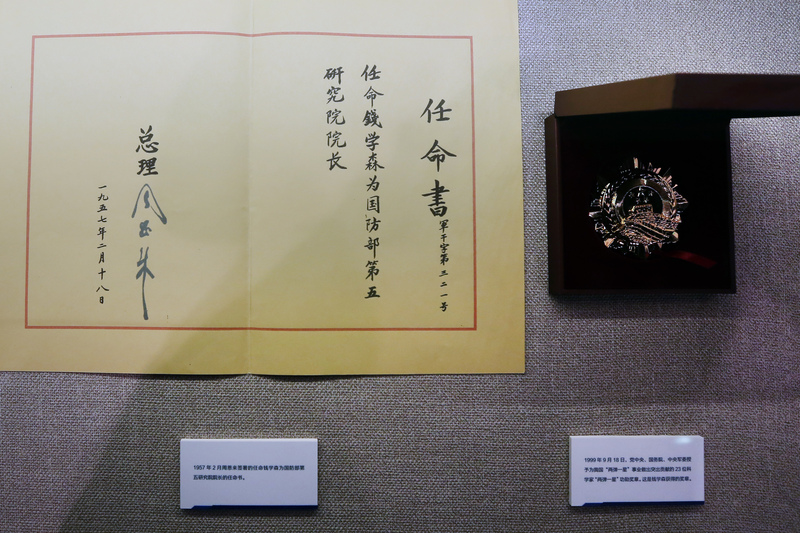 任命書
軍干字第三二一号
任命錢学森为国防部第五
研究院院长
总理
周恩来
一九五七年二月十八日
1957年2月周恩来签署的任命钱学森为国防部第
五研究院院长的任命书。
1999年9月18日，党中央、国务院、中央军委授
予为我国“两弹一星”事业做出突出贡献的23位科
学家“两弹一星”功勋奖章。这是钱学森获得的奖章。